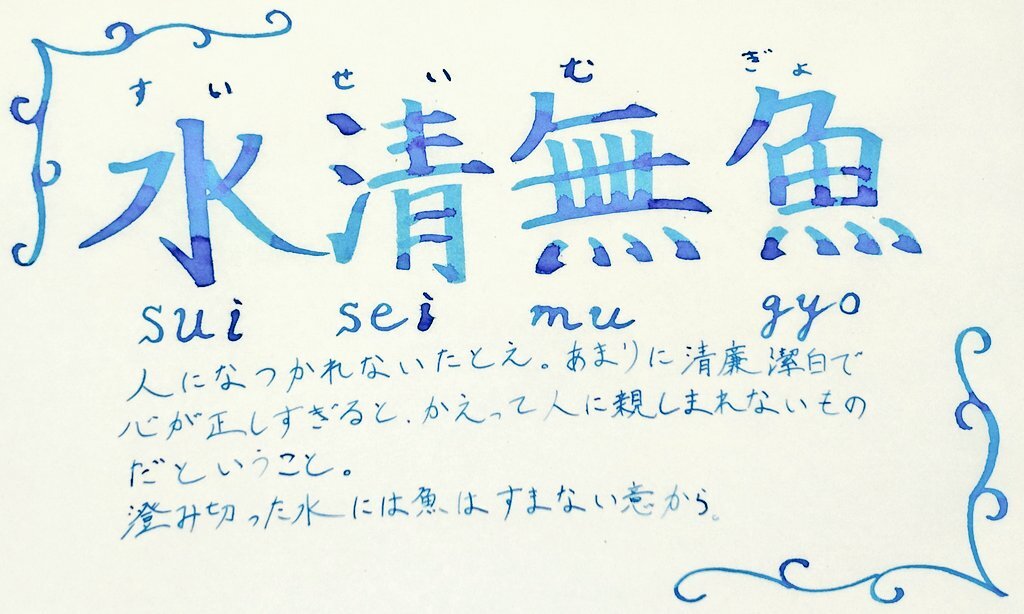 すい せい む ぎょ
水清無魚
sui sei mu gyo
人になつかれないたとえ。あまりに清廉潔白で
心が正しすぎると、かえって人に親しまれないもの
だということ。
澄み切った水には魚はすまない意から。